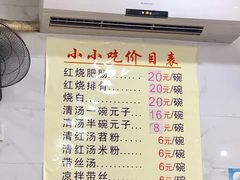 小小吃价目表
红烧肥肠 20元/碗
红烧排骨 20元/碗
烧白 20元/碗
清汤一碗元子 16元/碗
清汤半碗元子 8元/碗
清红汤苕粉 6元/碗
清红汤米粉 6元/碗
带丝汤 6元/碗
凉拌带丝 6元/碗